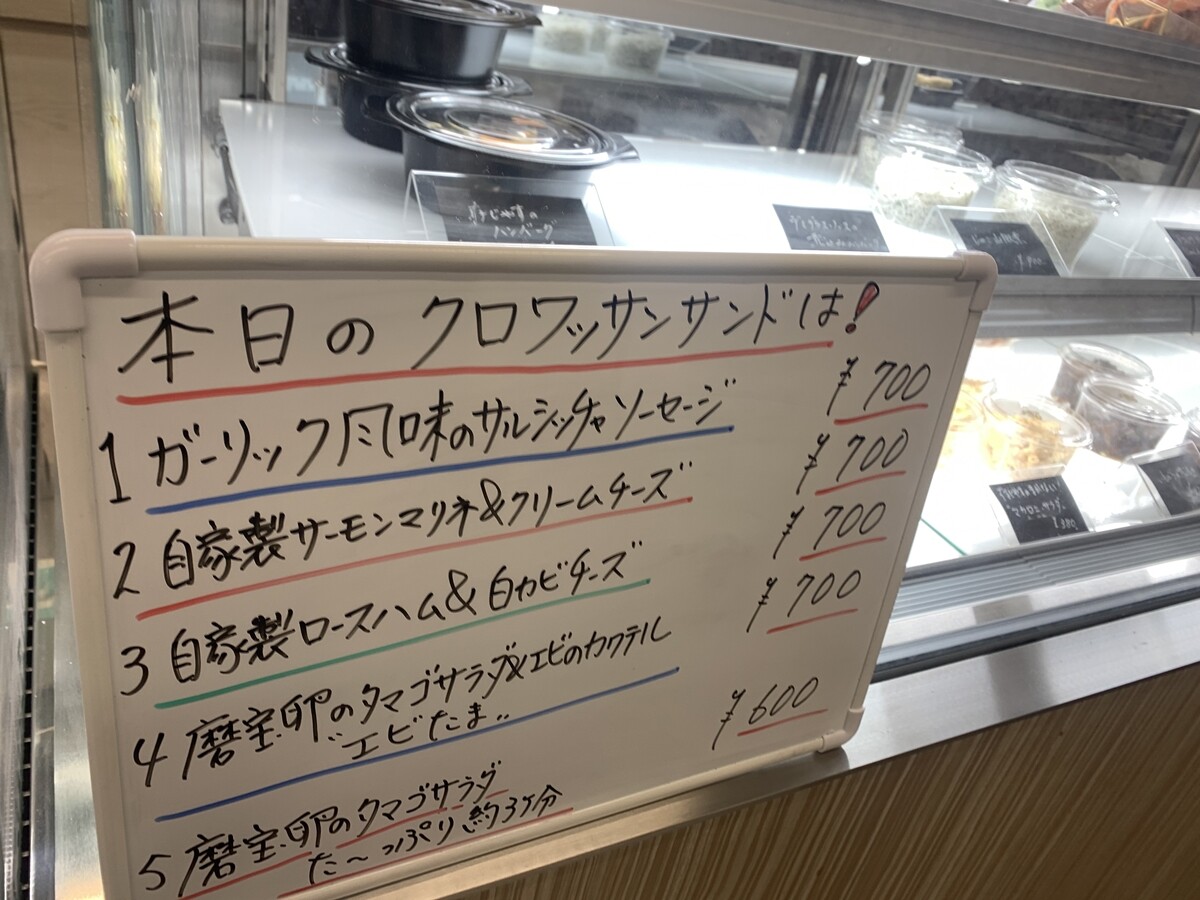 本日のクロワッサンサンドは!
1 ガーリック風味のサルシッチャソーセージ ¥700
2 自家製サーモンマリネ&クリームチーズ ¥700
3 自家製ロースハム&白カビチーズ ¥700
4 磨宝卵のタマゴサラダ&エビのカクテル ¥700
"エビたま"
5 磨宝卵のタマゴサラダ ¥600
た〜っぷり約3ケ分
ハンバーグ
マカロニサラダ
¥380